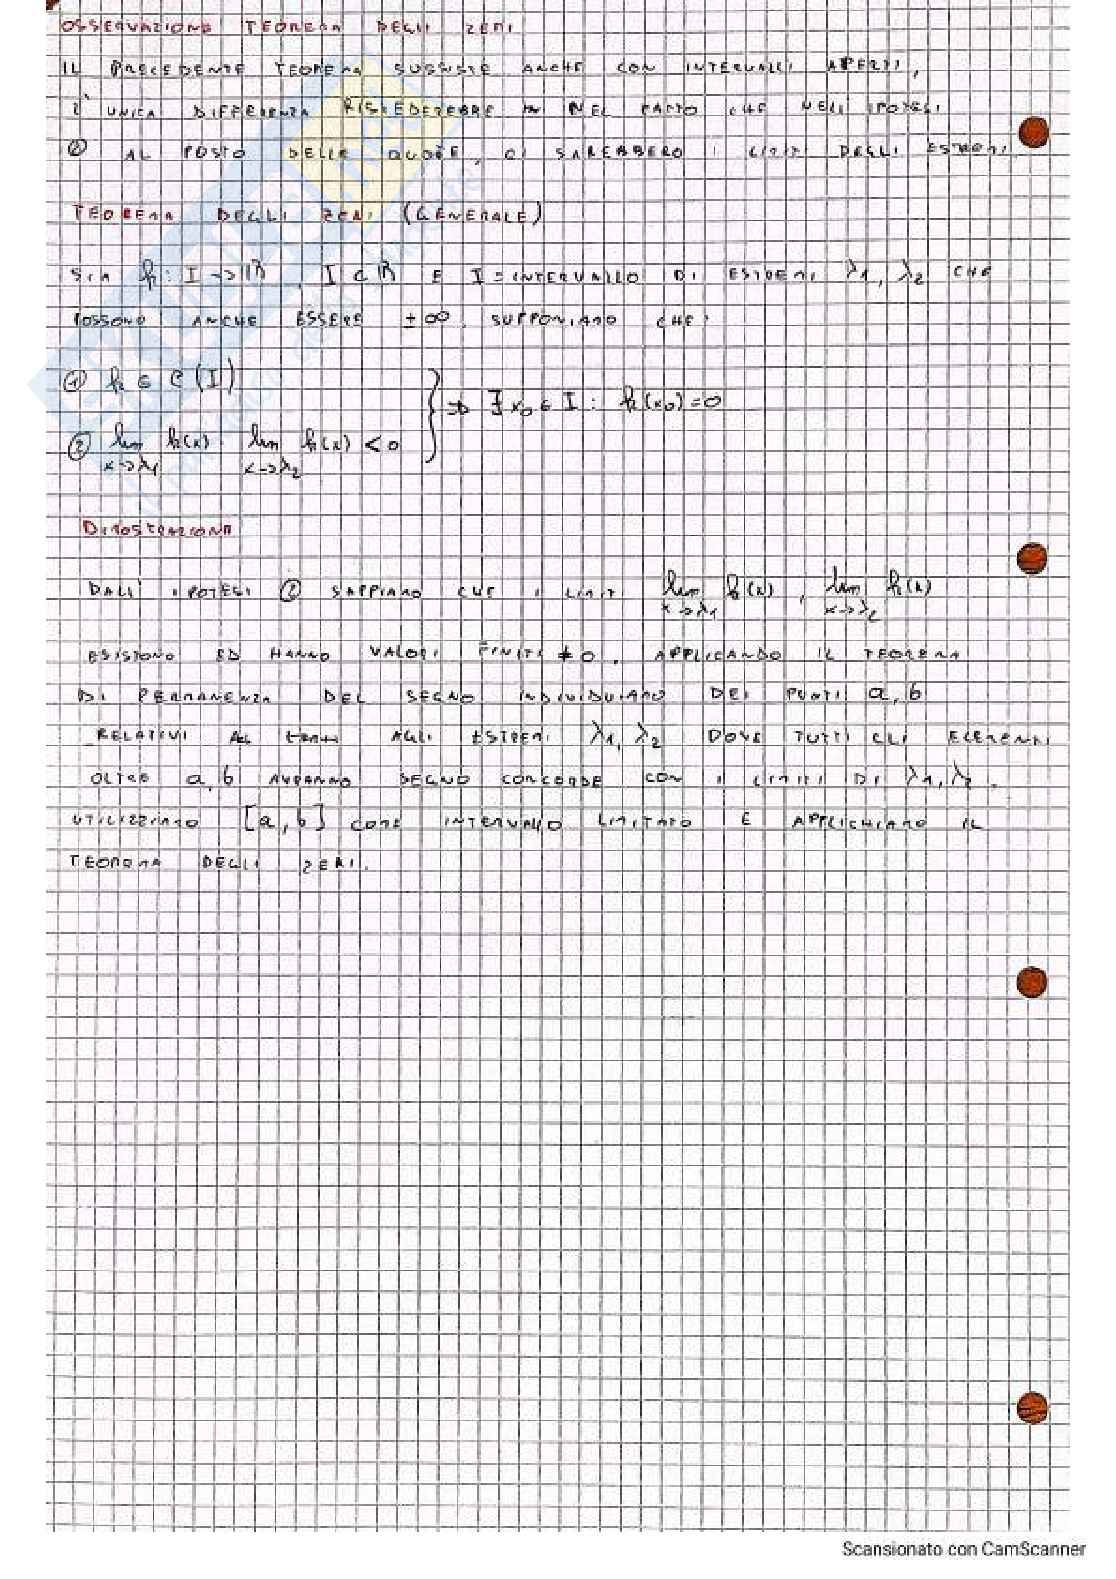 OSSERVAZIONE TEOREMA DEGLI ZERI
IL PRECEDENTE TEOREMA SUSSISTE ANCHE CON INTERVALLI APERTI,
L'UNICA DIFFERENZA RISIEDEREBBE NEL FATTO CHE NELL'IPOTESI
② AL POSTO DELLE QUOTE, CI SAREBBERO I LIMITI DEGLI ESTREMI
TEOREMA DEGLI ZERI (GENERALE)
SIA f: I → ℝ, I ⊂ ℝ E I = INTERVALLO DI ESTREMI λ1, λ2 CHE
POSSONO ANCHE ESSERE ±∞. SUPPONIAMO CHE:
① f ∈ C(I)
② lim x→λ1 f(x) · lim x→λ2 f(x) < 0 } ⇒ ∃ x0 ∈ I : f(x0) = 0
DIMOSTRAZIONE
DALL'IPOTESI ② SAPPIAMO CHE I LIMITI lim x→λ1 f(x), lim x→λ2 f(x)
ESISTONO ED HANNO VALORI FINITI ≠ 0. APPLICANDO IL TEOREMA
DI PERMANENZA DEL SEGNO INDIVIDUIAMO DEI PUNTI a, b
RELATIVI AGLI ESTREMI λ1, λ2 DOVE TUTTI GLI ELEMENTI
OLTRE a, b AVRANNO SEGNO CONCORDE CON I LIMITI DI λ1, λ2.
UTILIZZIAMO [a, b] COME INTERVALLO LIMITATO E APPLICHIAMO IL
TEOREMA DEGLI ZERI.
Scansionato con CamScanner